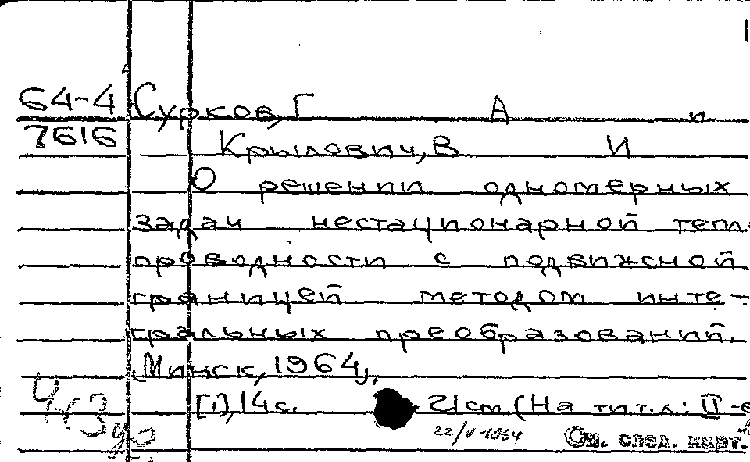 64-4 Сурков, Г А и
7616 Крылович, В И
О решении одномерных
задач нестационарной тепло
проводности с подвижной
границей методом инте-
гральных преобразований.
Минск, 1964,
[1], 14 с. 21 см (На тит.л.: II-е
22/V-1964 См. след. карт.